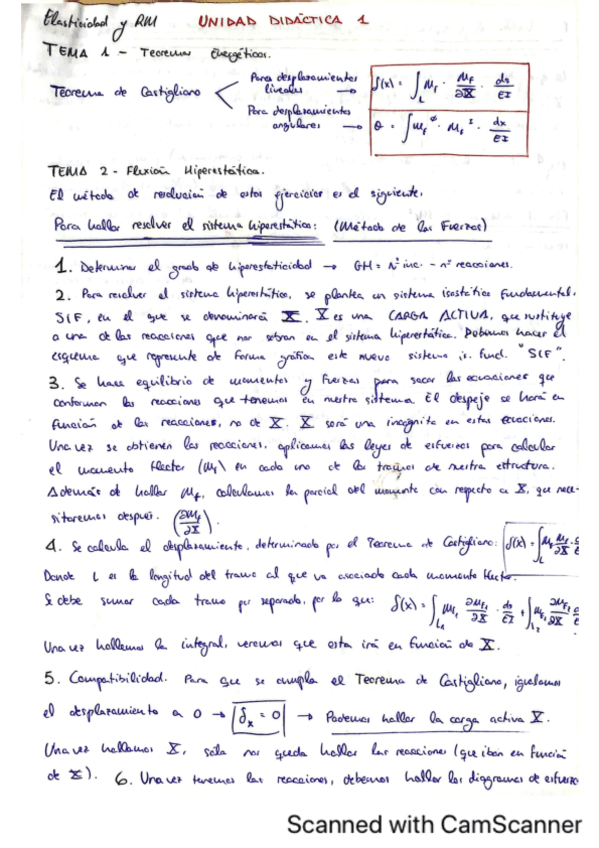 Elasticidad y RM UNIDAD DIDÁCTICA 1
TEMA 1 - Teoremas Energéticos.
Teorema de Castigliano
Para desplazamientos lineales → δ(x) = ∫_L M_f · M_f/∂X · ds/EI
Para desplazamientos angulares → θ = ∫ M_f^φ · M_f^I · dx/EI
TEMA 2 - Flexión Hiperestática.
El método de resolución de estos ejercicios es el siguiente.
Para hallar resolver el sistema hiperestático: (Método de las Fuerzas)
1. Determinar el grado de hiperestaticidad → GH = nº inc. - nº reacciones.
2. Para resolver el sistema hiperestático, se plantea un sistema isostático fundamental.
SIF, en el que se denominará X. X es una CARGA ACTIVA, que sustituye
a una de las reacciones que nos sobran en el sistema hiperestático. Debemos hacer el
esquema que represente de forma gráfica este nuevo sistema is. fund. "SIF".
3. Se hace equilibrio de momentos y fuerzas para sacar las ecuaciones que
conforman las reacciones que tenemos en nuestro sistema. El despeje se hará en
función de las reacciones, no de X. X será una incógnita en estas ecuaciones.
Una vez se obtienen las reacciones, aplicamos las leyes de esfuerzos para calcular
el momento flector (Mf) en cada uno de los tramos de nuestra estructura.
Además de hallar Mf, calculamos la parcial del momento con respecto a X, que nece-
sitaremos después. (∂Mf/∂X).
4. Se calcula el desplazamiento, determinado por el Teorema de Castigliano: δ(x) = ∫_L Mf · Mf/∂X ·
Donde L es la longitud del tramo al que va asociado cada momento flector.
Se debe sumar cada tramo por separado, por lo que: δ(x) = ∫_L1 Mf1 ∂Mf1/∂X · ds/EI + ∫_L2 Mf2 ∂Mf2/∂X
Una vez hallemos la integral, veremos que esta irá en función de X.
5. Compatibilidad. Para que se cumpla el Teorema de Castigliano, igualamos
el desplazamiento a 0 → δx = 0 → Podemos hallar la carga activa X.
Una vez hallamos X, sólo nos queda hallar las reacciones (que iban en función
de X). 6. Una vez tenemos las reacciones, debemos hallar los diagramas de esfuerzo
Scanned with CamScanner